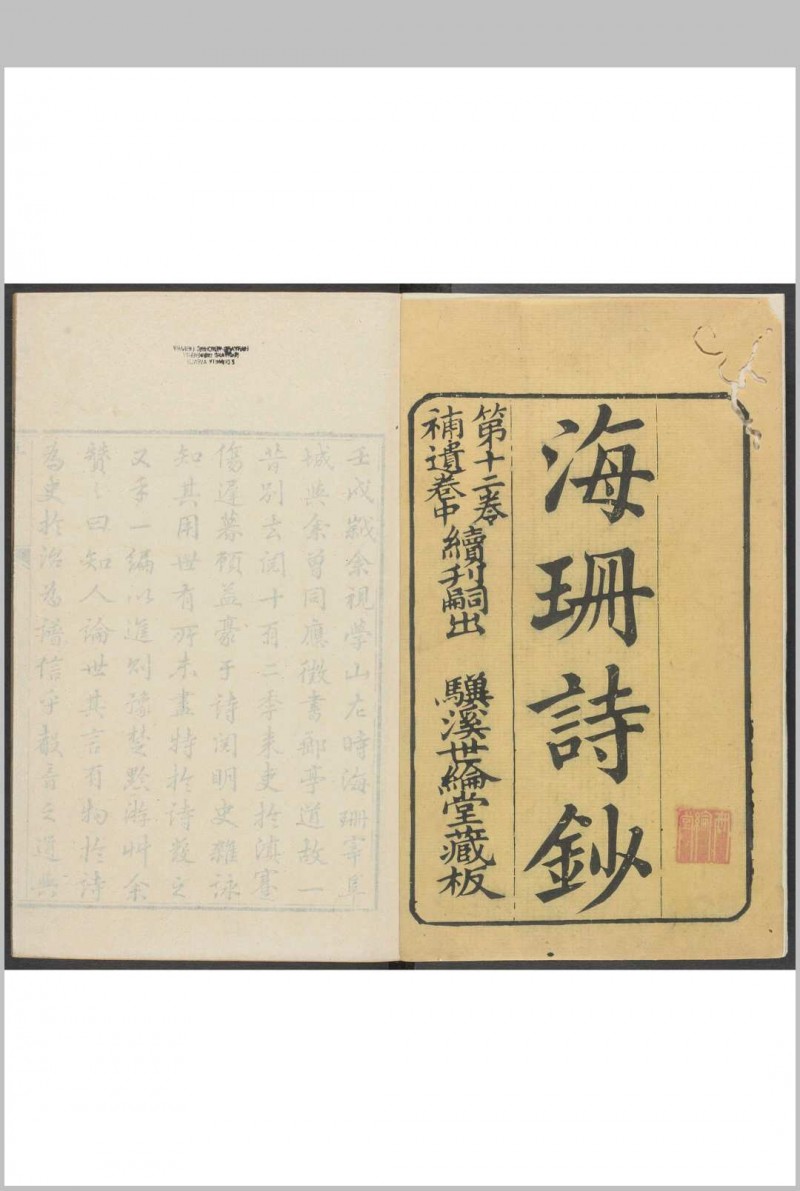 海珊詩鈔
第十二卷
補遺卷中
續刊嗣出
驥溪世綸堂藏板
壬戌歲余視學山左時海珊宰阜
城與余曾同應徵書郵亭道故一
昔別去閱十有二季来吏於滇蹇
傷遲暮顧益豪于詩閱明史雜詠
知其用世有所未盡特於詩發之
又手一編以進則豫楚黔游艸余
贊之曰知人論世其言有物於詩
為史於治為譜信乎聲音之道與